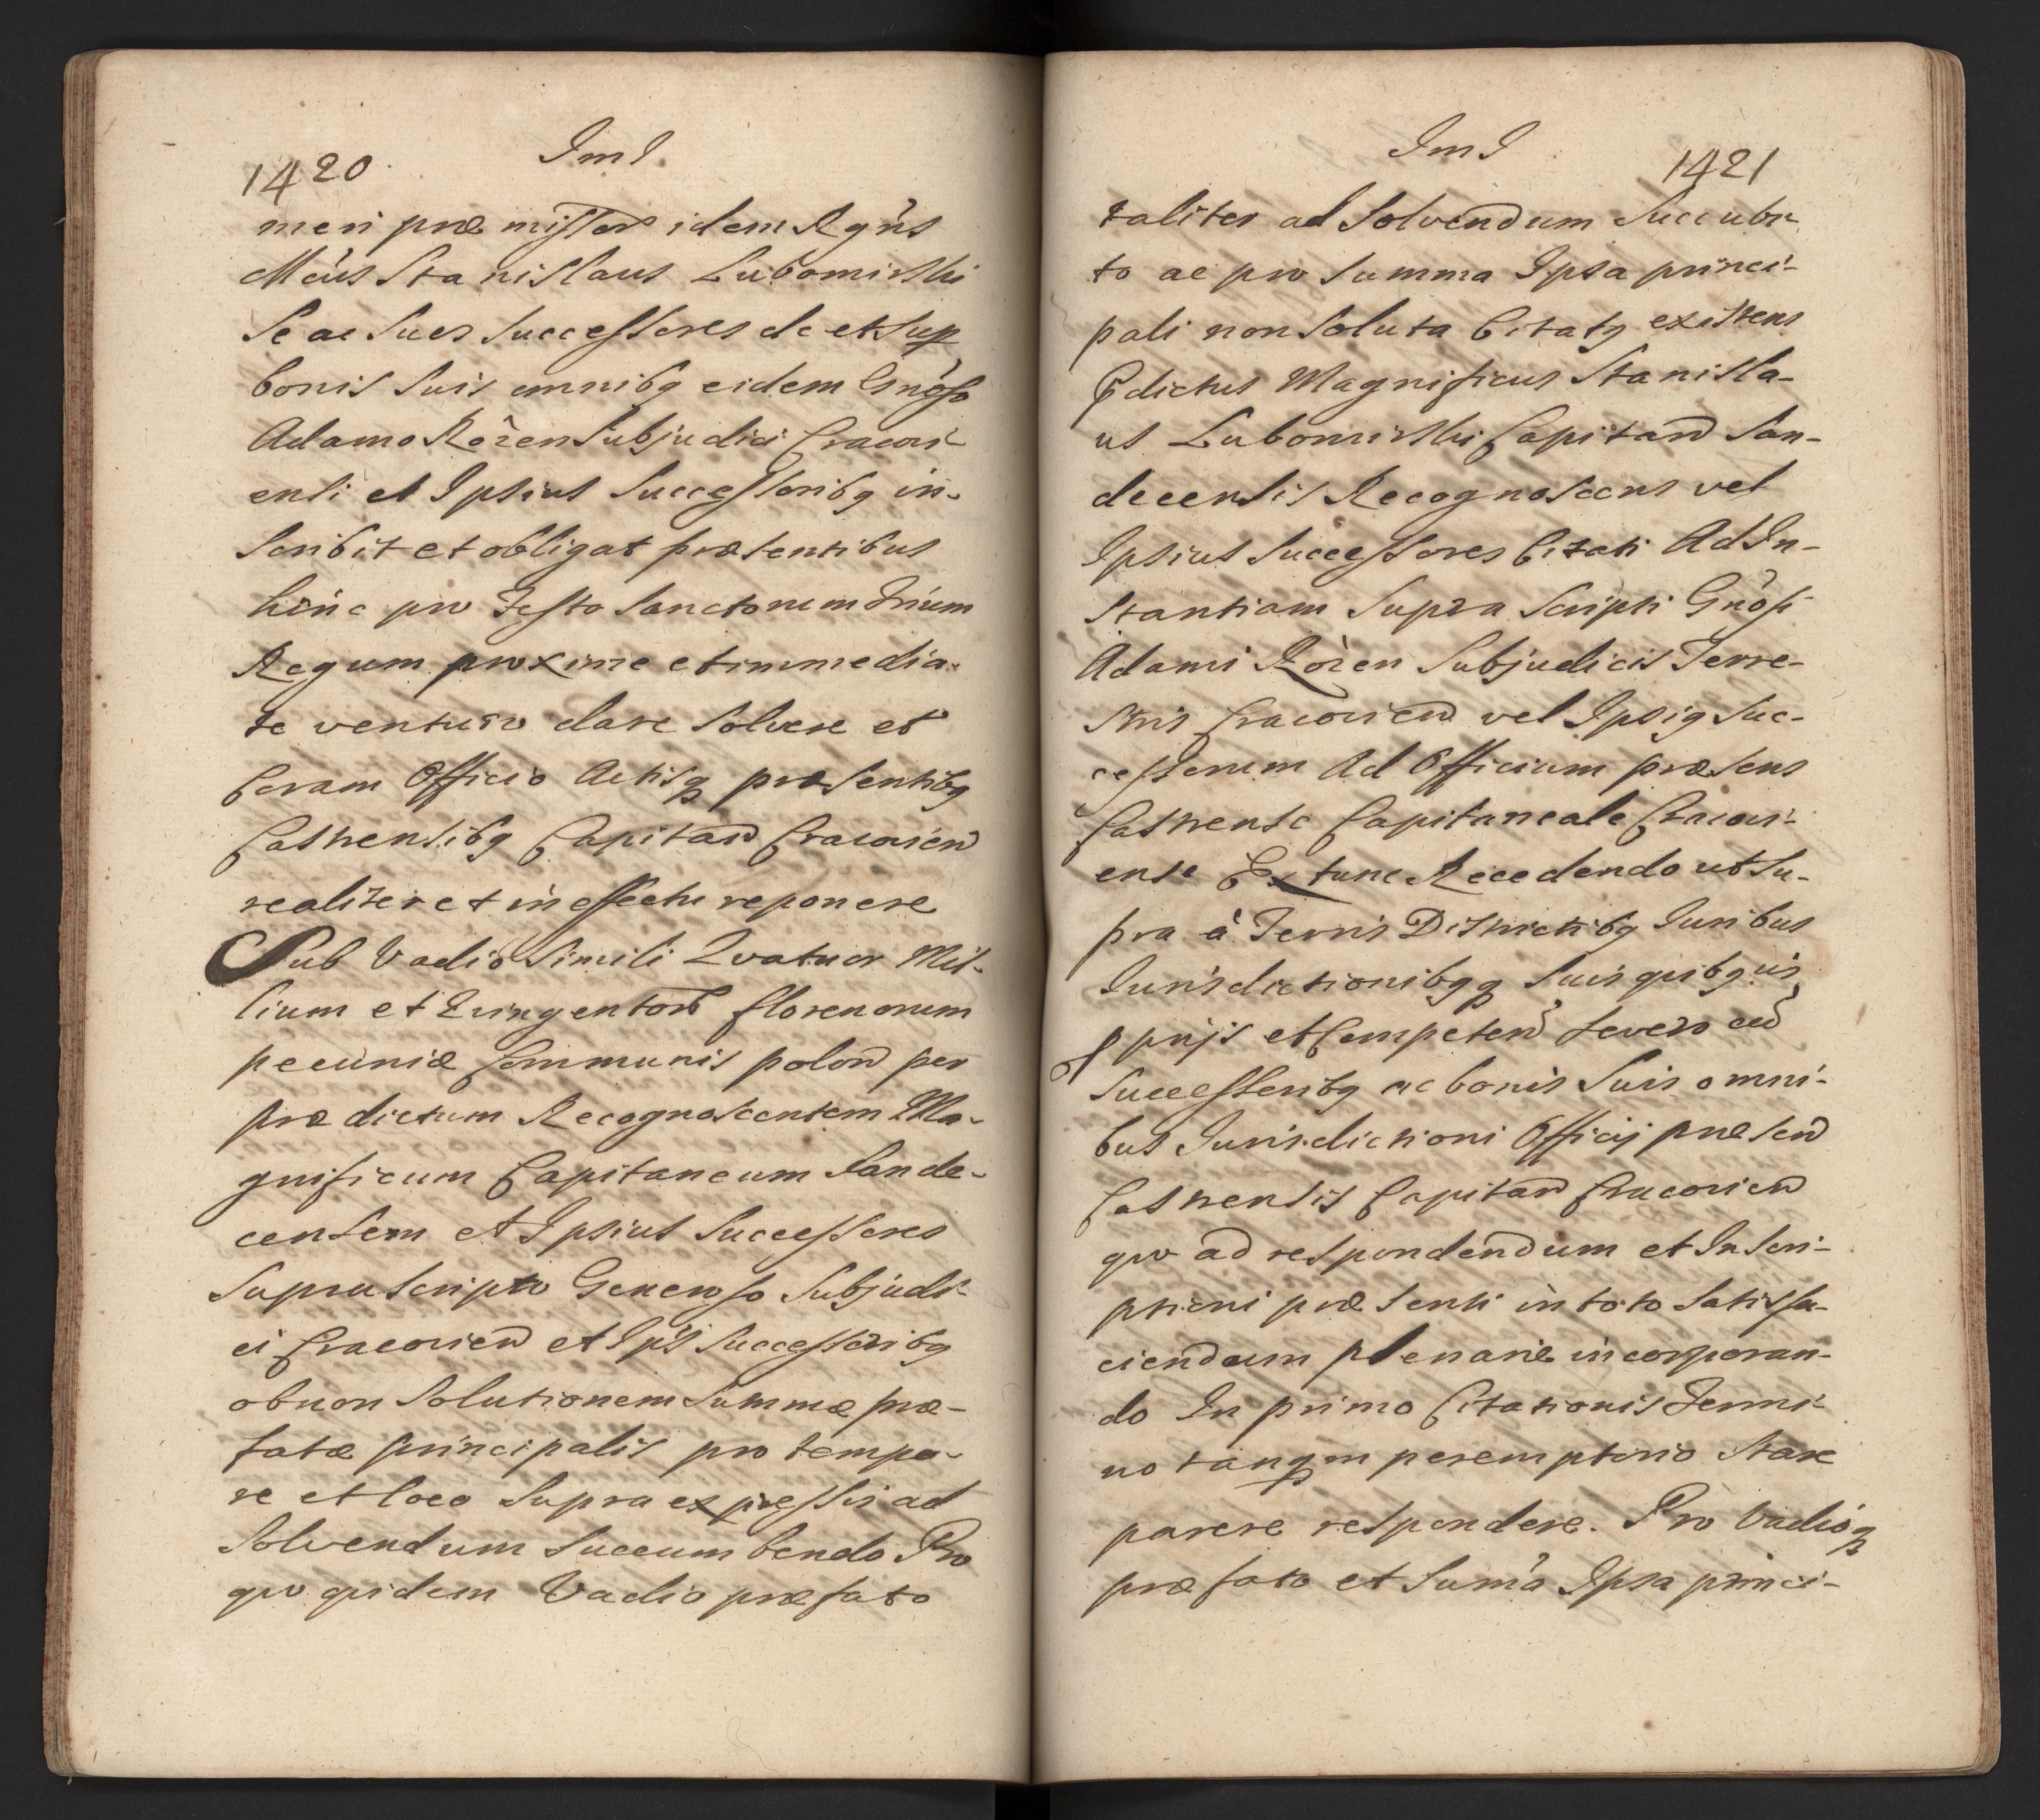 1420
ImI.
meri præ missor idem Rgńs
Mćus Stanislaus Lubomirski
Se ac Suos Successores de et Sup
bonis Suis omnibq eidem Gnoso
Adamo Rożen Subjudici Cracovi-
ensi et Ipsius Successoribq in-
scribit et obligat præsentibus
hinc pro Festo Sanctorum Trium
Regum proxime et immedia-
te venturo dare Solvere et
Coram Officio Actisq præsentibq
Castrensibq Capitan Cracovien
realiter et in effectu reponere
Sub Vadio Simili Qvatuor Mil-
lium et Qvingentor florenorum
pecuniæ Communis polon per
præ dictum Recognoscentem Ma-
gnificum Capitaneum Sande-
censem et Ipsius Successores
Suprascripto Generoso Subjudi-
ci Cracovien et Ips Successoribq
ob non Solutionem Summæ præ-
fatæ principalis pro tempo-
re et loco Supra expressis ad
Solvendum Succumbendo Pro
qvo qvidem Vadio præfato
ImI
1421
taliter ad Solvendum Succubi-
to ac pro Summa Ipsa princi-
pali non Soluta Citatq existens
Pdictus Magnificus Stanisla-
us Lubomirski Capitan San-
decensis Recognoscens vel
Ipsius Successores Citati Ad In-
stantiam Supra Scripti Gnosi
Adami Rożen Subjudicis Terre-
stris Cracovien vel Ipsiq Suc-
cessorum Ad Officium præsens
Castrense Capitaneale Cracovi-
ense Ex tunc Recedendo ut Su-
pra à Terris Districtibq Iuribus
Iurisdictionibqq Suis qvibqvis
pprijs et Competen Severo cu
Successoribq ac bonis Suis omni-
bus Iurisdictioni Officij præsen
Castrensis Capitan Cracovien
qvo ad respondendum et Inscri-
ptioni præ Senti in toto Satisfa-
ciendum plenariè incorporan-
do In primo Citationis Termi-
no tanqm peremptorio Stare
parere respondere. Pro Vadioq
præ fato et Suma Ipsa princi-